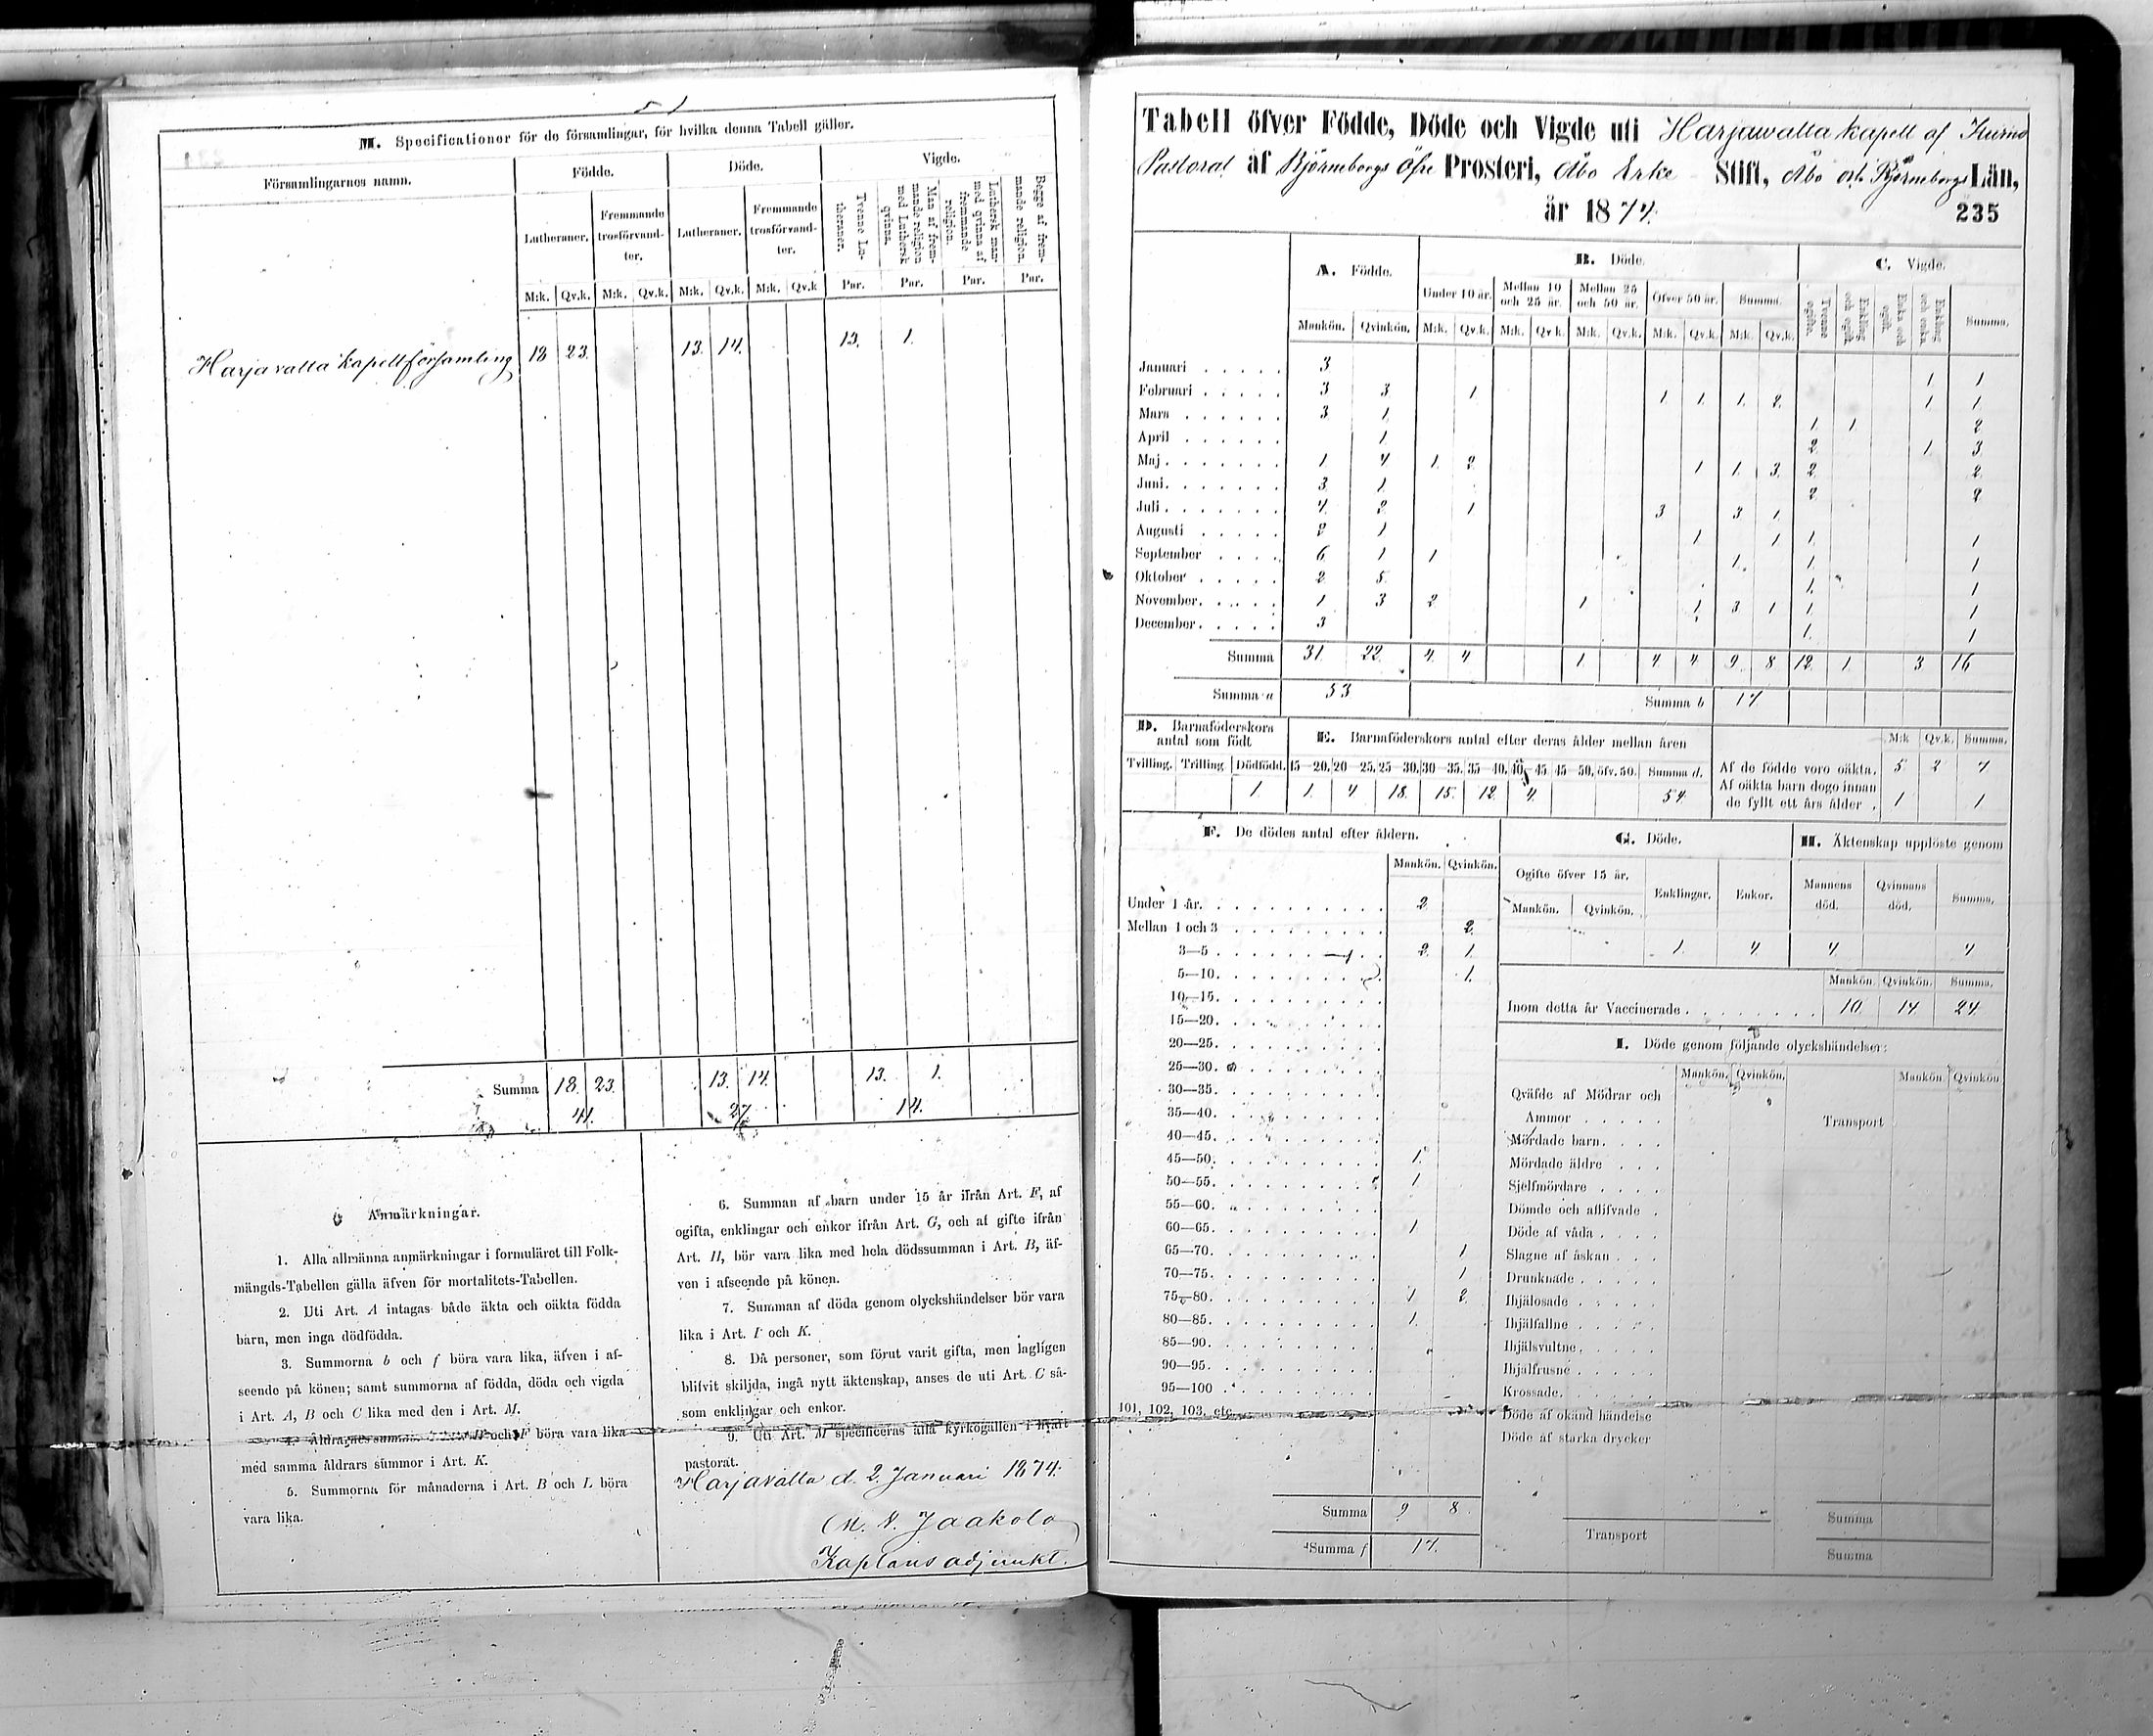 M. Specificationer för de församlingar, för hvilka denna Tabell gäller.
Församlingarnes namn.
Födde.
Döde.
Vigde.
Lutheraner.
Fremmande trosförvandter.
Lutheraner.
Fremmande trosförvandter.
Tvenne Lutheraner.
Man af fremmande religion med Luthersk qvinna.
Luthersk man med qvinna af fremmande religion.
Begge af fremmande religion.
M:k. Qv.k. M:k. Qv.k. M:k. Qv.k. M:k. Qv.k Par. Par. Par. Par.
Harjavalta kapellförsamling 18 23. 13. 14. 13. 1.
Summa 18. 23. 13. 14. 13. 1.
41. 27. 14.
Anmärkningar.
1. Alla allmänna anmärkningar i formuläret till Folk-
mängds-Tabellen gälla äfven för mortalitets-Tabellen.
2. Uti Art. A intagas både äkta och oäkta födda
barn, men inga dödfödda.
3. Summorna b och f böra vara lika, äfven i af-
seende på könen; samt summorna af födda, döda och vigda
i Art. A, B och C lika med den i Art. M.
och F böra vara lika
med samma åldrars summor i Art. K.
5. Summorna för månaderna i Art. B och L böra
vara lika.
6. Summan af barn under 15 år ifrån Art. F, af
ogifta, enklingar och enkor ifrån Art. G, och af gifte ifrån
Art. H, bör vara lika med hela dödssumman i Art. B, äf-
ven i afseende på könen.
7. Summan af döda genom olyckshändelser bör vara
lika i Art. I och K.
8. Då personer, som förut varit gifta, men lagligen
blifvit skiljda, ingå nytt äktenskap, anses de uti Art. C så-
som enklingar och enkor.
9. Uti Art. M specificeras alla kyrkogällen i hvart
pastorat.
Harjavalta d. 2. Januari 1874.
Jaakola
Kaplans adjunkt.
Tabell öfver Födde, Döde och Vigde uti Harjawalta kapell af Kumo
Pastorat af Björneborgs Öfre Prosteri, Åbo Erke Stift, Åbo och Björneborgs Län,
år 1874. 235
A. Födde.
B. Döde.
C. Vigde.
Under 10 år. Mellan 10 och 25 år. Mellan 25 och 50 år. Öfver 50 år. Summa.
Tvenne ogifte. Enkling och ogift. Enka och ogift. Enkling och enka. Summa.
Mankön. Qvinkön. M:k. Qv.k. M:k. Qv.k. M:k. Qv.k. M:k. Qv.k. M:k. Qv.k.
Januari 3 1 1
Februari 3 3 1 1 1 1. 2. 1 1
Mars 3 1 1 1 2
April 1 2 1 3
Maj 1 4 1 2 1 1 3 2 2
Juni 3 1 2 2
Juli 4 2 1 3 3 1
Augusti 2 1 1 1 1 1
September 6 1 1 1. 1 1
Oktober 2 5 1. 1
November 1 3 2 1 1 3 1 1 1
December 3 1. 1
Summa 31 22 4 4 1 4 4 9 8 12 1 3 16
Summa a 53 Summa b 17
D. Barnaföderskors antal som födt
Tvilling. Trilling Dödfödd.
1
E. Barnaföderskors antal efter deras ålder mellan åren
15—20. 20—25. 25—30. 30—35. 35—40. 40—45 45—50. öfv. 50. Summa d.
1. 4 18. 15. 12. 4. 54.
M:k Qv.k. Summa.
Af de födde voro oäkta. 5 2 7
Af oäkta barn dogo innan
de fyllt ett års ålder. 1 1
F. De dödes antal efter åldern.
Mankön. Qvinkön.
Under 1 år. 2
Mellan 1 och 3 2.
3—5. 2 1.
5—10. 1.
10—15.
15—20.
20—25.
25—30.
30—35.
35—40.
40—45.
45—50. 1.
50—55. 1
55—60.
60—65. 1
65—70. 1
70—75. 1
75—80. 1 2
80—85. 1.
85—90.
90—95.
95—100
101, 102, 103, etc.
Summa 9 8
Summa f 17.
G. Döde.
Ogifte öfver 15 år. Enklingar. Enkor.
Mankön. Qvinkön.
1. 4
H. Äktenskap upplöste genom
Mannens död. Qvinnans död. Summa.
4 4
Mankön. Qvinkön. Summa.
Inom detta år Vaccinerade 10. 14 24.
I. Döde genom följande olyckshändelser:
Mankön. Qvinkön. Mankön Qvinkön
Qväfde af Mödrar och
Ammor
Transport
Mördade barn.
Mördade äldre
Sjelfmördare
Dömde och aflifvade
Döde af våda
Slagne af åskan
Drunknade
Ihjälosade
Ihjälfallne
Ihjälsvultne.
Ihjälfrusne
Krossade.
Döde af okänd händelse
Döde af starka drycker
Transport
Summa
Summa